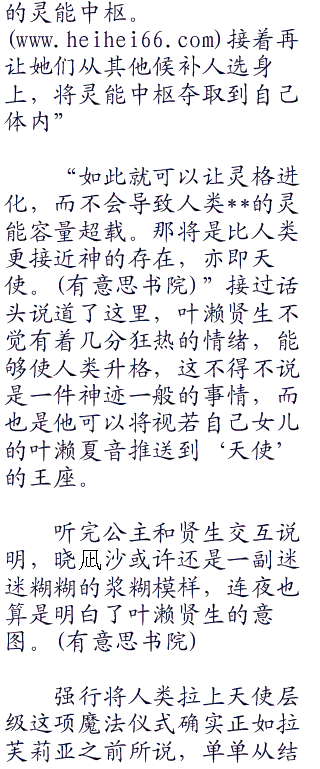 的灵能中枢。
(www.heihei66.com)接着再
让她们从其他候补人选身
上，将灵能中枢夺取到自己
体内”
“如此就可以让灵格进
化，而不会导致人类**的灵
能容量超载。那将是比人类
更接近神的存在，亦即天
使。(有意思书院)”接过话
头说道了这里，叶濑贤生不
觉有着几分狂热的情绪，能
够使人类升格，这不得不说
是一件神迹一般的事情，而
也是他可以将视若自己女儿
的叶濑夏音推送到‘天使’
的王座。
听完公主和贤生交互说
明，晓凪沙或许还是一副迷
迷糊糊的浆糊模样，连夜也
算是明白了叶濑贤生的意
图。(有意思书院)
强行将人类拉上天使层
级这项魔法仪式确实正如拉
芙莉亚之前所说，单单从结